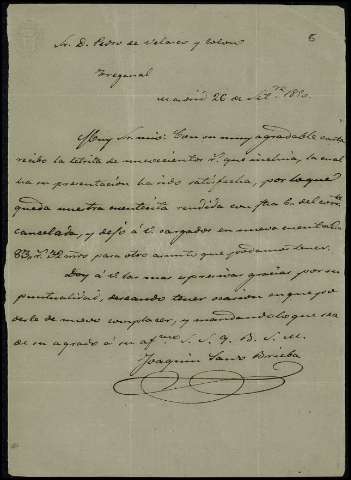 6
Sr. D. Pedro de Velasco y
Fregenal
Madrid 26 de Set.re 1850.
Muy Sr. mio: Con su muy agradable carta
recibo la letrita de novecientos r.s que incluia, la cual
a su presentacion ha sido satisfecha, por lo que
queda nuestra cuentecita rendida con fha 6. del
cancelada, y dejo á V. cargados en nueva cuenta
83 r.s 32 mrs para otro asunto que podamos tener.
Doy á V. las mas expresivas gracias, por su
puntualidad, deseando tener ocasion en que po
derle de nuevo complacer, y mandando lo que sea
de su agrado á su af.mo S. S. Q. B. S. M.
Joaquin Sanz Brieba